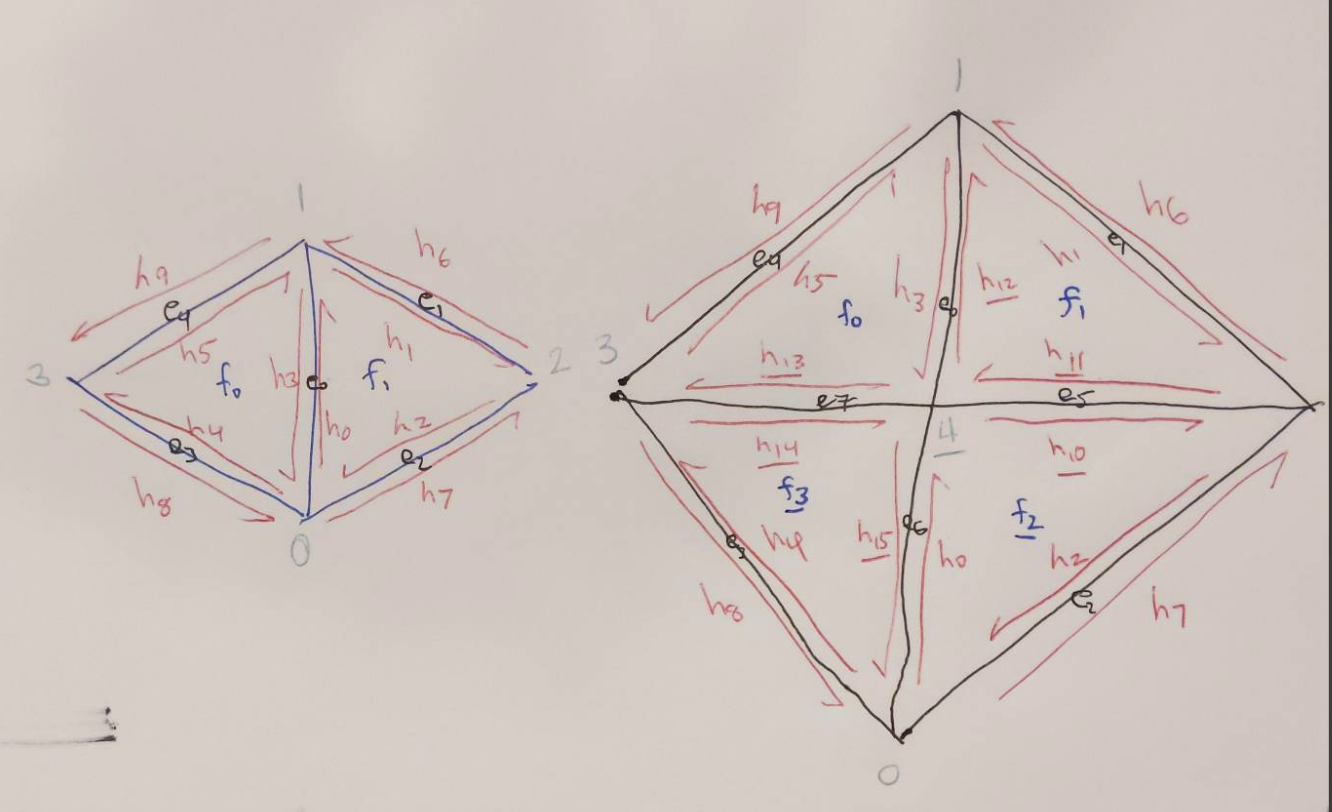 1
h9
h6
e4
e1
h5
h1
3
f0
h3
e0
f1
2
h4
h0
h2
e3
e2
h8
h7
0
1
h9
h6
e4
e1
h5
h3
e0
h12
h1
f0
f1
3
h13
h11
e7
e5
h14
4
h10
f3
f2
e3
h4
h15
e6
h0
h2
h8
e2
h7
0